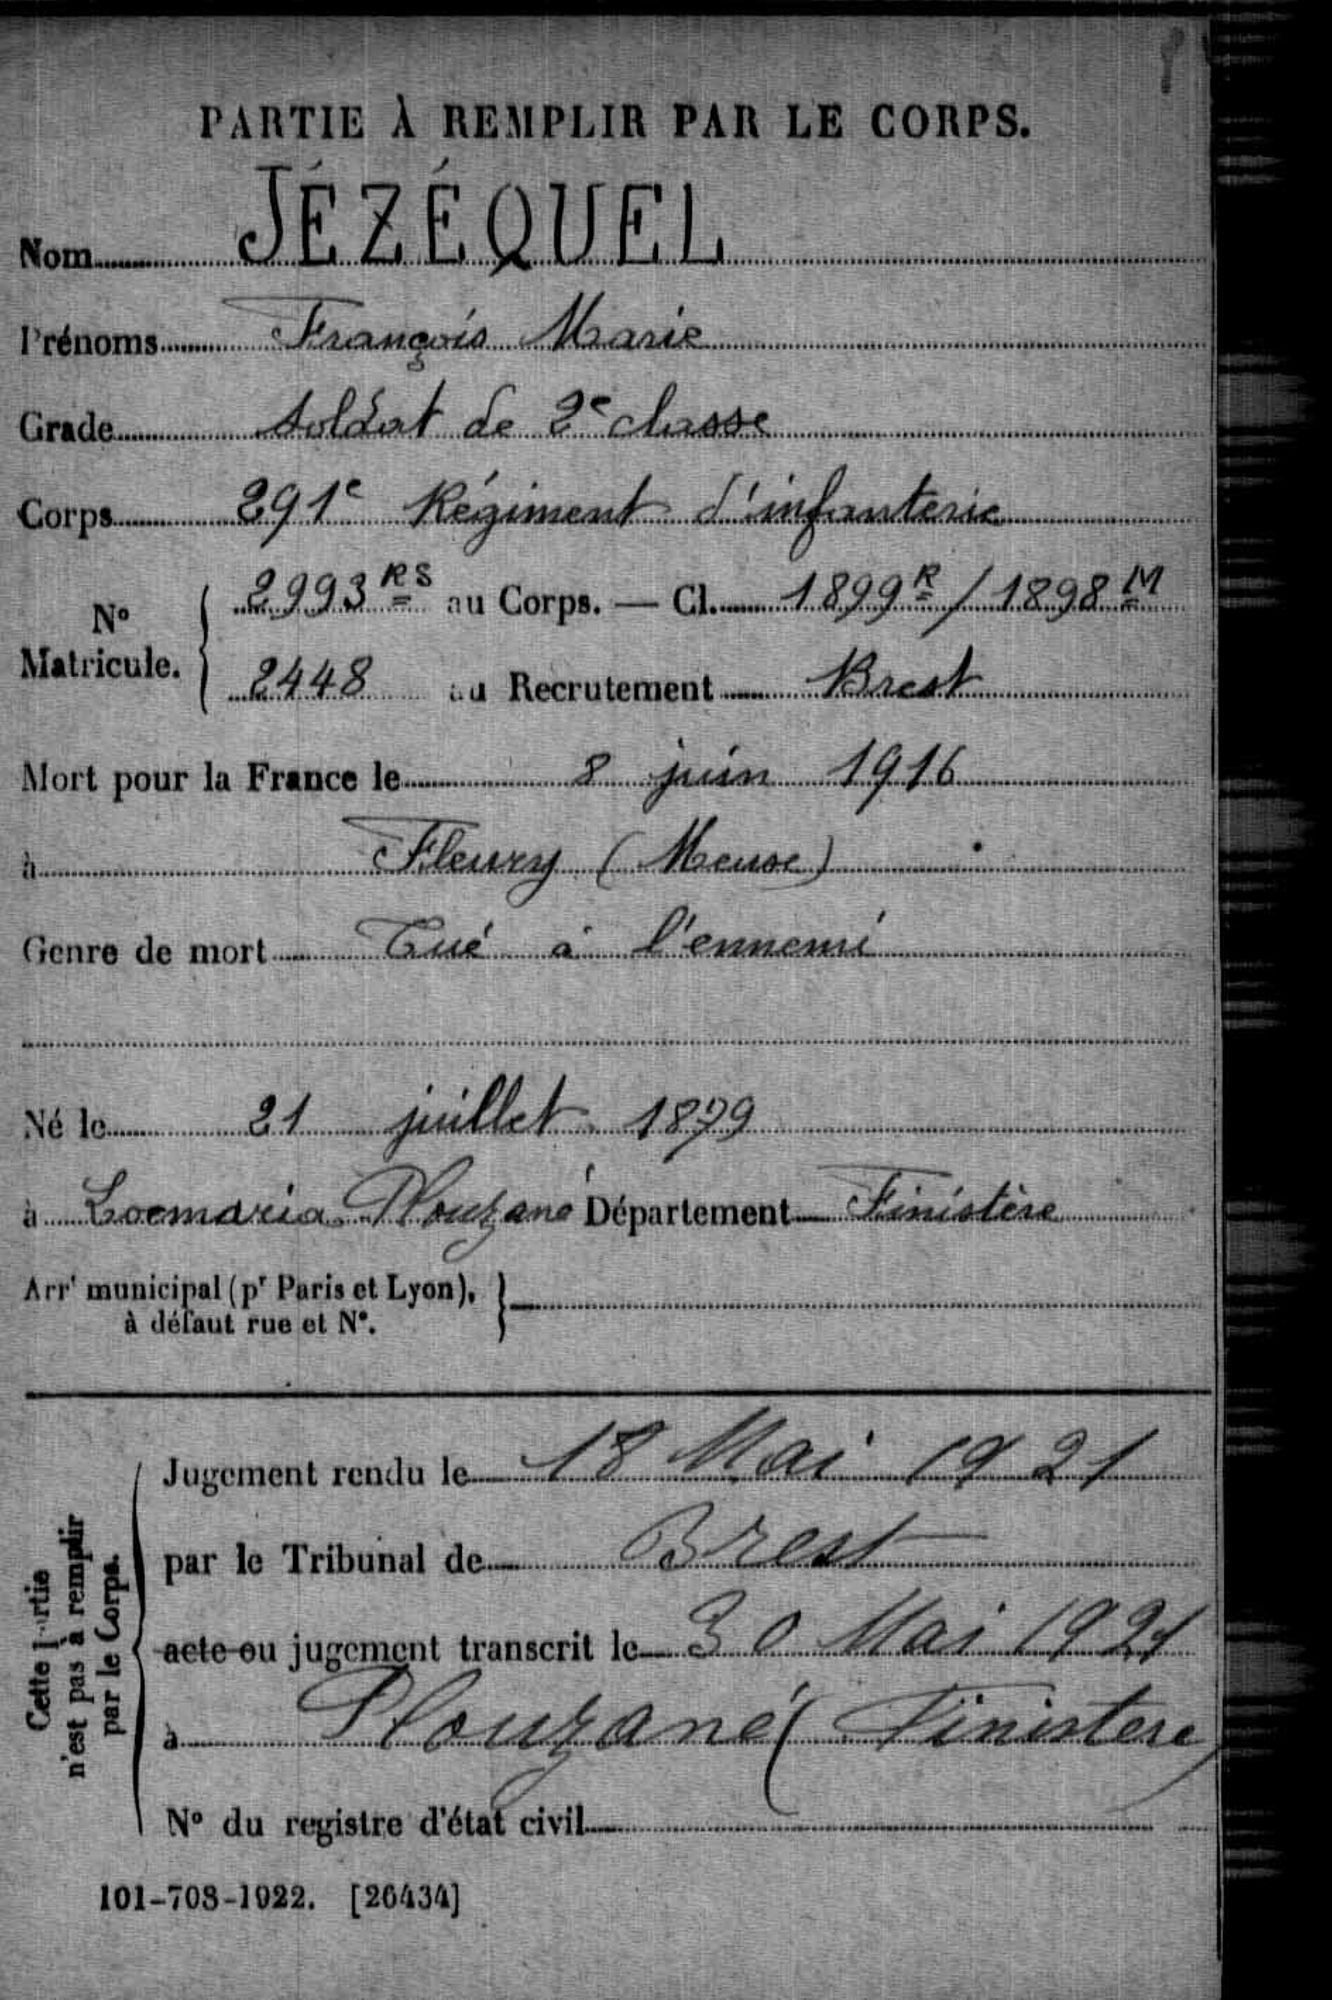 PARTIE À REMPLIR PAR LE CORPS.
Nom JÉZÉQUEL
Prénoms François Marie
Grade Soldat de 2e classe
Corps 291e Régiment d'infanterie
N° Matricule. 2993 RS au Corps. — Cl. 1899 R / 1898 M
2448 au Recrutement Brest
Mort pour la France le 8 juin 1916
à Fleury (Meuse)
Genre de mort Tué à l'ennemi
Né le 21 juillet 1879
à Locmaria-Plouzané Département Finistère
Arrt municipal (pr Paris et Lyon),
à défaut rue et N°.
Cette partie
n'est pas à remplir
par le Corps.
Jugement rendu le 18 Mai 1921
par le Tribunal de Brest
acte ou jugement transcrit le 30 Mai 1921
à Plouzané (Finistere)
N° du registre d'état civil
101-708-1922. [26434]